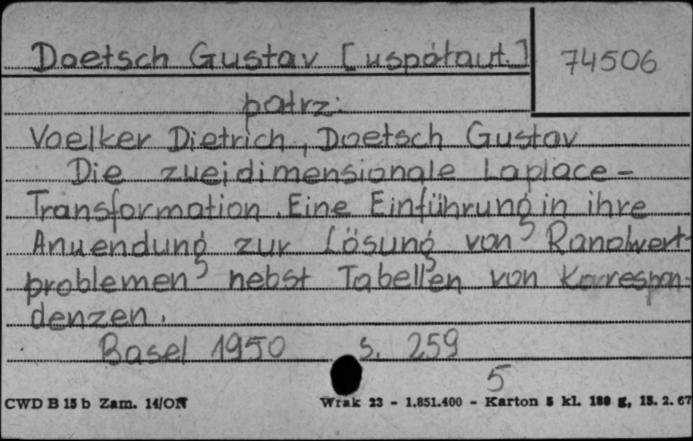 Doetsch Gustav [uspółaut.]
74506
patrz:
Voelker Dietrich, Doetsch Gustav
Die zweidimensionale Laplace-
Transformation. Eine Einführung in ihre
Anwendung zur Lösung von Randwert-
problemen nebst Tabellen von Korrespon-
denzen.
Basel 1950 s. 259
5
CWD B 15 b Zam. 14/ON Wrak 23 - 1.851.400 - Karton 5 kl. 180 g, 15. 2. 67